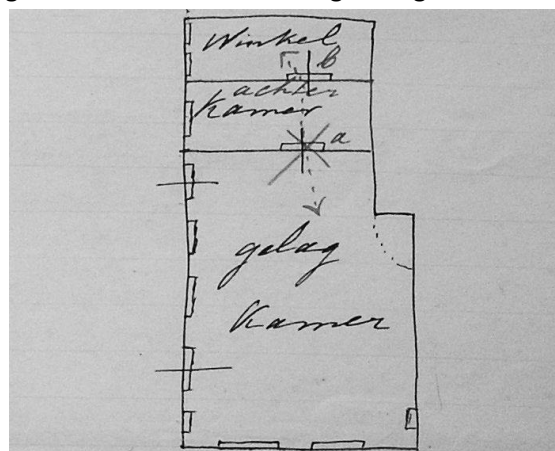 Winkel
b
achter
Kamer
a
gelag
Kamer